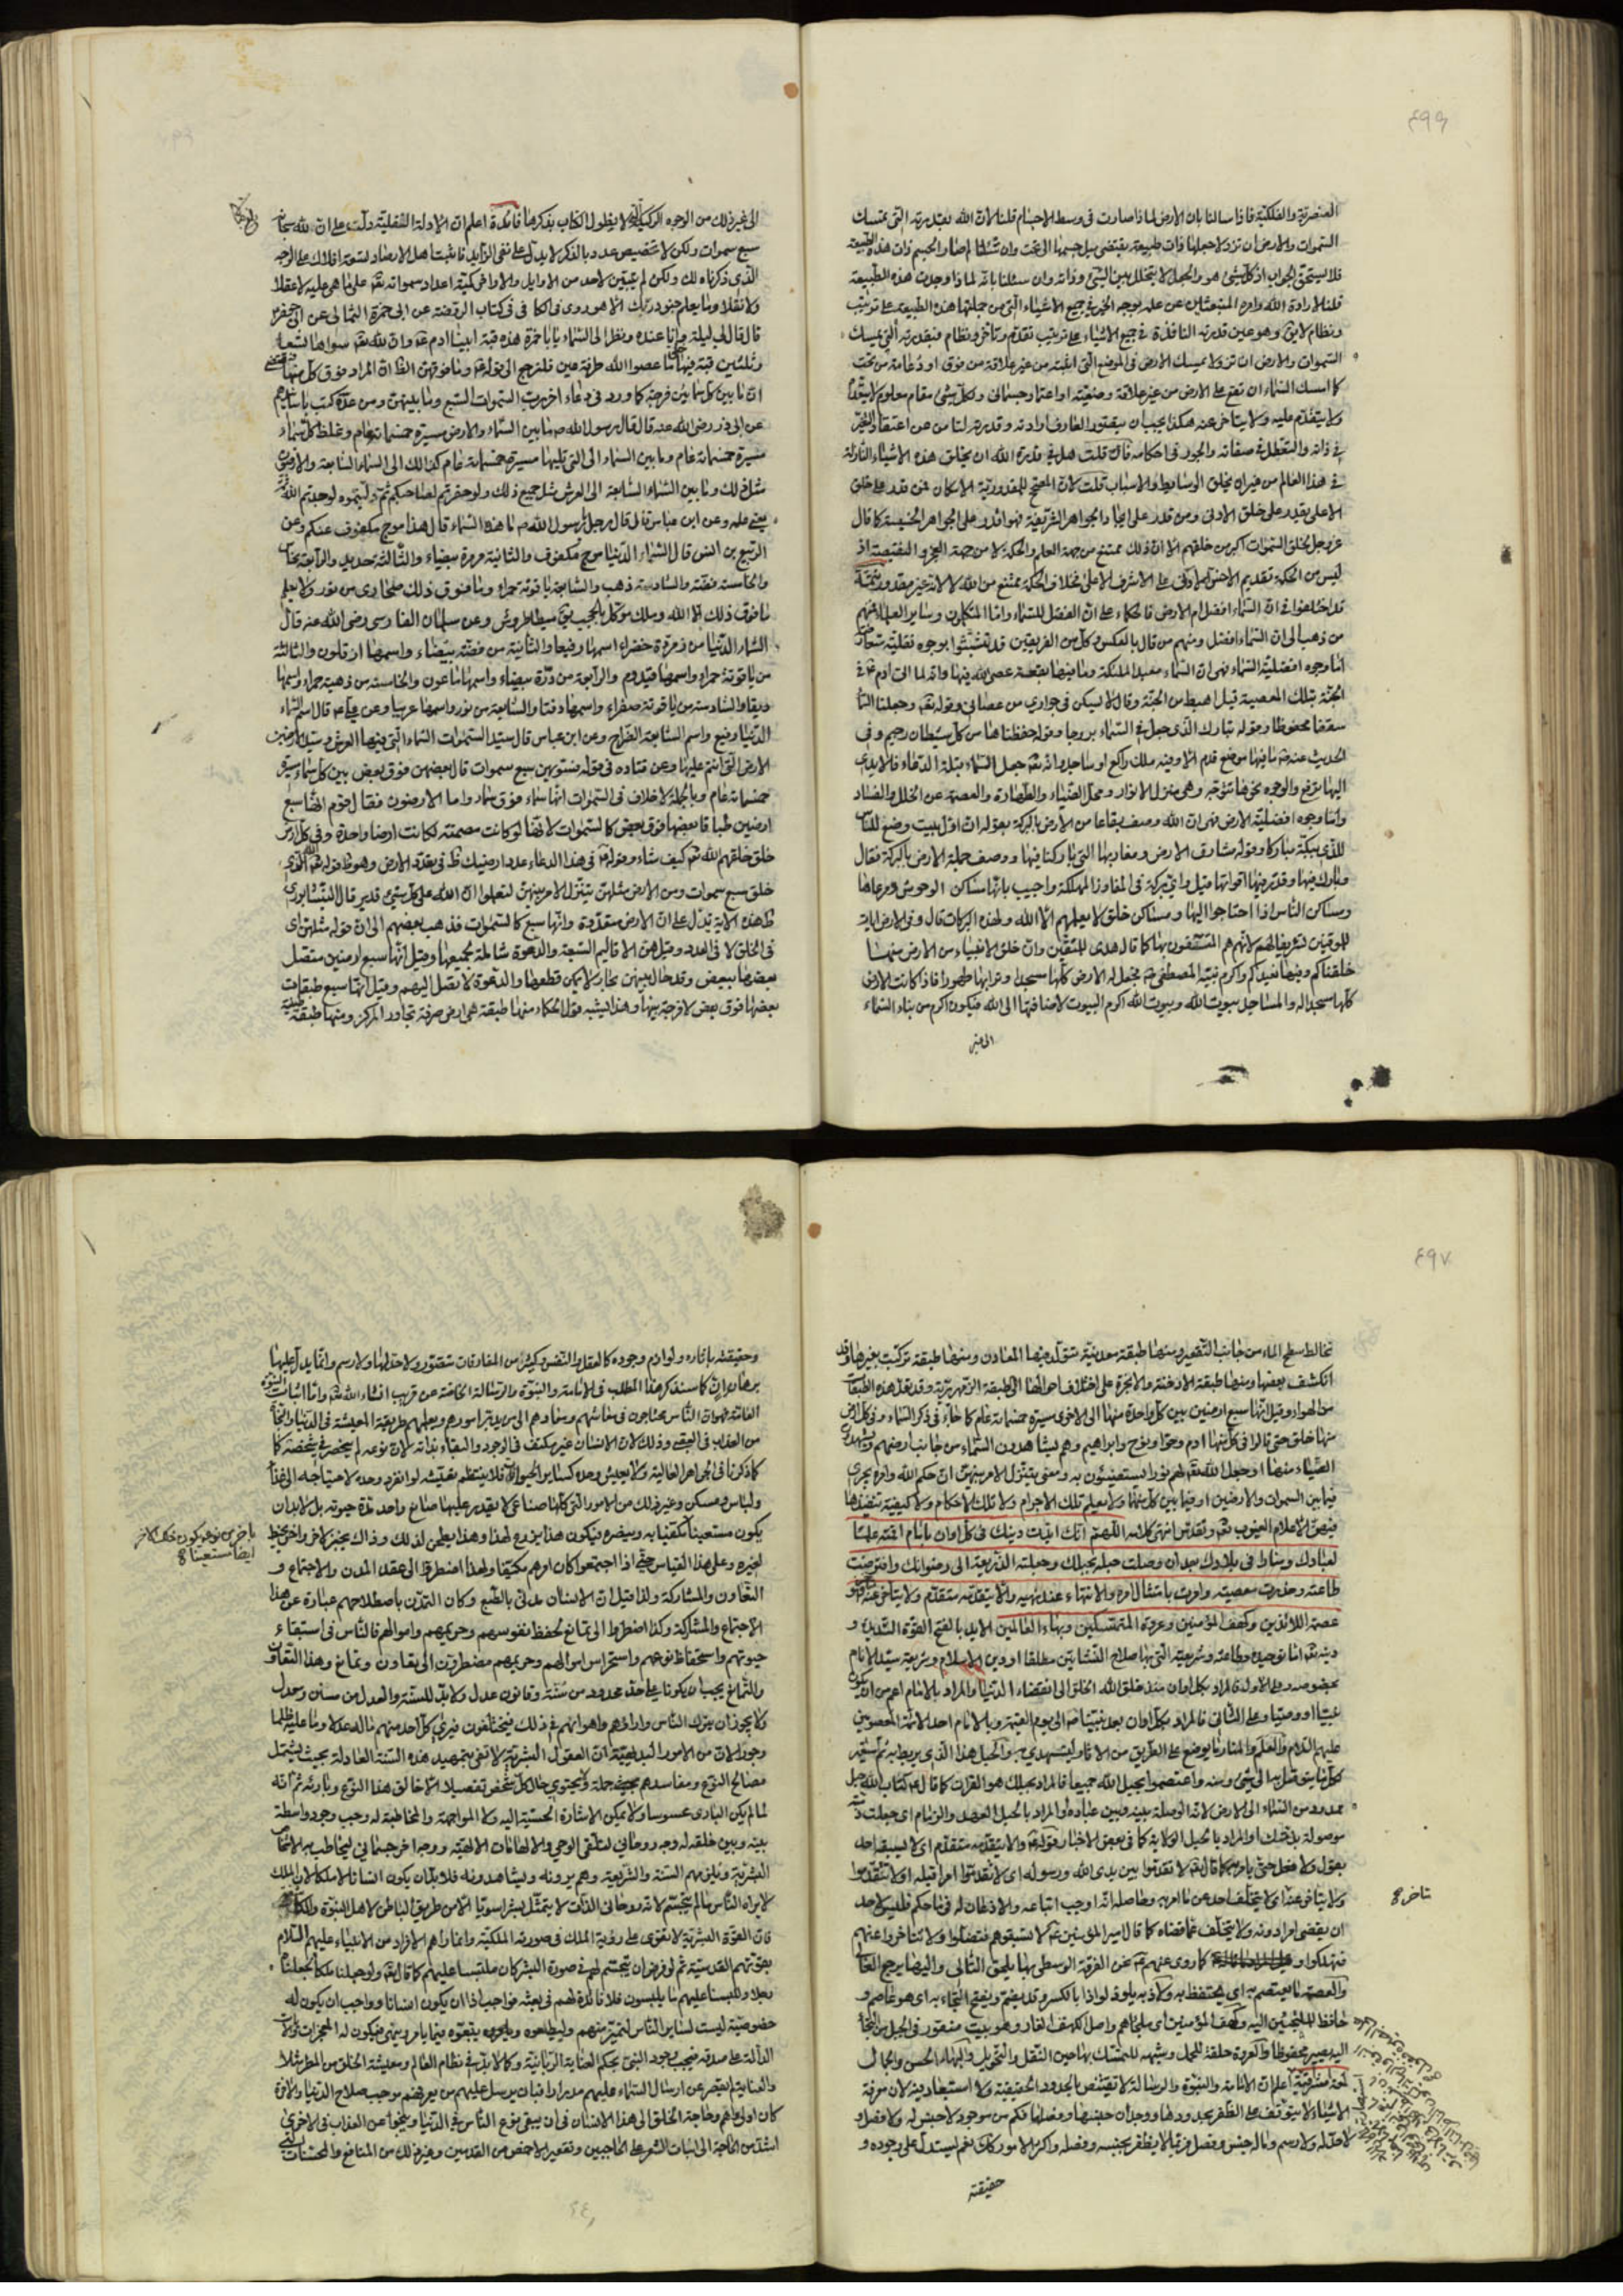 ٤٩٦
العنصرية والفلكية فاذا سالنا بان الارض لماذا صارت فى وسط الاجسام قلنا لان الله بقدرته التى يمسك
السموات والارض ان تزولا جعلها ذات طبيعة يقتضى ميل جسمها الى تحت وان سئلنا لم صار الجسم ذات هذه الطبيعة
فلا يستحق الجواب اذ كل شئ هو هو والجعل لا يتخلل بين الشئ وذاته وان سئلنا بانه لماذا وجدت هذه الطبيعة
قلنا لارادة الله وامره المنبعثان من علمه بوجه الخير فى جميع الاشياء التى من جملتها هذه الطبيعة على ترتيب
ونظام لايق وهو عين قدرته النافذة فى جميع الاشياء على ترتيب تقدم وتاخر ونظام فبقدرته التى يمسك
السموات والارض ان تزولا يمسك الارض فى الموضع التى اثبته من غير علاقة من فوق او دعامة من تحت
كما امسك السماء ان تقع على الارض من غير علاقة واعتماد جسمانى ولكل شئ مقام معلوم لا يتعداه
ولا يتقدم عليه ولا يتاخر عنه هكذا يجب ان يعتقد العارف ارادته وقدرته
فى ذاته والتعطل فى صفاته والجور فى احكامه فان قلت هل فى قدرة الله ان يخلق هذه الاشياء النازلة
فى هذا العالم من غير ان يخلق الوسايط والاسباب قلت لان المصحح للمقدورية الامكان فمن قدر على خلق
الاعلى يقدر على خلق الادنى ومن قدر على ايجاد الجواهر الشريفة فهو اقدر على الجواهر الخسيسة كما قال
عز وجل لخلق السموات اكبر من خلقهم الا ان ذلك ممتنع من جهة العلم والحكمة لا من جهة العجز والنقيصة اذ
ليس من الحكمة تقديم الاخس الادنى على الاشرف الاعلى فخلاف الحكمة ممتنع من الله لا لانه غير مقدور تتمة
قد اختلفوا فى ان السماء افضل ام الارض فالحكماء على ان الفضل للسماء واما المتكلمون وساير العلماء فمنهم
من ذهب الى ان السماء افضل ومنهم من قال بالعكس وكل من الفريقين قد تشبثوا بوجوه نقلية
اما وجوه افضلية السماء فهى ان السماء معبد الملئكة وما فيها بقعة عصى الله فيها وانه لما اتى ادم ع فى
الجنة بتلك المعصية قيل اهبط من الجنة وقال لا يسكن فى جوارى من عصانى وقوله تع وجعلنا السماء
سقفا محفوظا وقوله تبارك الذى جعل فى السماء بروجا وقوله حفظناها من كل شيطان رجيم وفى
الحديث عنه ص ما فيها موضع قدم الا وفيه ملك راكع او ساجد وانه تع جعل السماء قبلة الدعاء فالايدى
اليها ترفع والوجوه نحوها تتوجه وهى منزل الانوار ومحل الضياء والطهارة والعصمة عن الخلل والفساد
واما وجوه افضلية الارض فهى ان الله وصف بقاعا من الارض بالبركة بقوله ان اول بيت وضع للناس
للذى ببكة مباركا وقوله مشارق الارض ومغاربها التى باركنا فيها ووصف جملة الارض بالبركة فقال
وبارك فيها وقدر فيها اقواتها قيل واى بركة فى المفاوز المهلكة واجيب بانها مساكن الوحوش ومرعاها
ومساكن الناس اذا احتاجوا اليها ومساكن خلق لا يعلمهم الا الله ولهذه البركات قال وفى الارض ايات
للموقنين تشريفا لهم لانهم هم المنتفعون بها كما قال هدى للمتقين وان خلق الانبياء من الارض منها
خلقناكم وفيها نعيدكم واكرم نبيه المصطفى ص فجعل له الارض كلها مسجدا وترابها طهورا فاذا كانت الارض
كلها مسجدا له والمساجد بيوت الله وبيوت الله اكرم البيوت لاضافتها الى الله فيكون اكرم من بناء السماء
الى غير
الى غير ذلك من الوجوه الركيكة التى لا يطول الكتاب بذكرها فائدة اعلم ان الادلة النقلية دلت على ان لله سبحانه
سبع سموات ولكن لا تخصيص عدد بالذكر لا يدل على نفى الزايد فاثبت اهل الارصاد تسعة افلاك على الوجه
الذى ذكرناه لك ولكن لم يتبين لاحد من الاوايل والاواخر كمية اعداد سمواته تع على ما هى عليه لا عقلا
ولا نقلا وما يعلم جنود ربك الا هو روى فى الكافى فى كتاب الروضة عن ابى حمزة الثمالى عن ابى جعفر ع
قال قال لى ليلة وانا عنده ونظر الى السماء يا با حمزة هذه قبة ابينا ادم ع وان لله تع سواها تسعا
وثلثين قبة فيها خلق ما عصوا الله طرفة عين فلنرجع الى قوله ع وما فوقهن الظ ان المراد فوق كل منها
ان ما بين كل سمائين فرجة كما ورد فى دعاء اخر رب السموات السبع وما بينهن ومن عدة كتب باسانيدهم
عن ابى ذر رضى الله عنه قال قال رسول الله ص ما بين السماء والارض مسيرة خمسمائة عام وغلظ كل سماء
مسيرة خمسمائة عام وما بين السماء الى التى تليها مسيرة خمسمائة عام كذلك الى السماء السابعة والارضين
مثل ذلك وما بين السماء السابعة الى العرش مثل جميع ذلك ولو حفرتم لصاحبكم ثم دليتموه لوجدتم الله
يعنى علمه وعن ابن عباس قال قال رجل لرسول الله ص ما هذه السماء قال هذا موج مكفوف عنكم وعن
الربيع بن انس قال السماء الدنيا موج مكفوف والثانية مرمرة بيضاء والثالثة حديد والرابعة نحاس
والخامسة فضة والسادسة ذهب والسابعة ياقوتة حمراء وما فوق ذلك صحارى من نور ولا يعلم
ما فوق ذلك الا الله وملك موكل بالحجب يقال ميطاطروش وعن سلمان الفارسى رضى الله عنه قال
السماء الدنيا من زمردة خضراء اسمها رفيعا والثانية من فضة بيضاء واسمها ارقلون والثالثة
من ياقوتة حمراء واسمها قيدوم والرابعة من درة بيضاء واسمها ماعون والخامسة من ذهبة حمراء واسمها
ديقا والسادسة من ياقوتة صفراء واسمها دفنا والسابعة من نور واسمها عريبا وعن على ع قال اسم السماء
الدنيا رفيع واسم السابعة الضراح وعن ابن عباس قال سيد السموات السماء التى فيها العرش وسيد الارضين
الارض التى انتم عليها وعن قتاده فى قوله فسويهن سبع سموات قال بعضهن فوق بعض بين كل سماء مسيرة
خمسمائة عام وبالجملة لا خلاف فى السموات انها سماء فوق سماء واما الارضون فقال قوم انها سبع
ارضين طباقا بعضها فوق بعض كالسموات لانها لو كانت مصمتة لكانت ارضا واحدة وفى كل ارض
خلق خلقهم الله تع كيف شاء وقوله ع فى هذا الدعاء عدد ارضيك ظ فى تعدد الارض وهو ظ قوله تع الله الذى
خلق سبع سموات ومن الارض مثلهن يتنزل الامر بينهن لتعلموا ان الله على كل شئ قدير قال النيشابورى
ظ هذه الاية تدل على ان الارض متعددة وانها سبع كالسموات فذهب بعضهم الى ان قوله مثلهن اى
فى الخلق لا فى العدد وقيل هن الاقاليم السبعة والدعوة شاملة لجميعها وقيل انها سبع ارضين متصل
بعضها ببعض وقد حال بينهن بحار لا يمكن قطعها والدعوة لا تصل اليهم وقيل انها سبع طبقات
بعضها فوق بعض لا فرجة بينها وهذا يشبه قول الحكماء منها طبقة هى ارض صرفة تجاور المركز ومنها طبقة طينية
٤٩٧
تخالط سطح الماء من جانب التقعير ومنها طبقة معدنية تتولد فيها المعادن ومنها طبقة تركبت بغيرها وقد
انكشف بعضها ومنها طبقة الادخنة والابخرة على اختلاف احوالها اى طبقة الزمهريرية وقد تعد هذه الطبقات
من الهواء وقيل انها سبع ارضين بين كل واحدة منها الى الاخرى مسيرة خمسمائة عام كما جاء فى ذكر السماء وفى كل ارض
منها خلق حتى قالوا فى كل منها ادم وحوا ونوح وابراهيم وهم يشاهدون السماء من جانب ارضهم ويشهدون
الضياء منها او جعل الله تع لهم نورا يستضيئون به ومعنى يتنزل الامر بينهن ان حكم الله وامره يجرى
فيما بين السموات والارضين او فيما بين كل منها ولا يعلم تلك الاجرام ولا تلك الاحكام ولا كيفية تنفيذها
فيهن الا علام الغيوب تع وتقدس انتهى كلامه اللهم انك ايدت دينك فى كل اوان بامام اقمته علما
لعبادك ومنارا فى بلادك بعد ان وصلت حبله بحبلك وجعلته الذريعة الى رضوانك وافترضت
طاعته وحذرت معصيته وامرت بامتثال امره والانتهاء عند نهيه والا يتقدمه متقدم ولا يتاخر عنه متاخر فهو
عصمة اللائذين وكهف المؤمنين وعروة المتمسكين وبهاء العالمين الايد بالفتح القوة الشديد و
دينه تع اما توحيده وطاعته وشريعته التى بها صلاح النشاتين مطلقا او دين الاسلام وشريعة سيد الانام
بخصوصه وعلى الاول فالمراد بكل اوان منذ خلق الله الخلق الى انقضاء الدنيا والمراد بالامام اعم من ان يكون
نبيا او وصيا وعلى الثانى فالمراد بكل اوان بعد نبينا ص الى يوم القيمة وبالامام احد الائمة المعصومين
عليهم السلام والعلم والمنار ما يوضع على الطريق من الاثار ليستهدى به والحبل هذا الذى يربط به ثم استعير
لكل ما يتوصل به الى شئ ومنه واعتصموا بحبل الله جميعا فالمراد بحبلك هو القران كما قال ع كتاب الله حبل
ممدود من السماء الى الارض لانه الوصلة بينه وبين عباده والمراد بالحبل العهد والزمام اى جعلت ذمته
موصولة بذمتك او المراد بالحبل الولاية كما فى بعض الاخبار قوله ع والا يتقدمه متقدم اى لا يسبقه احد
بقول ولا فعل حتى يامر به كما قال تع لا تقدموا بين يدى الله ورسوله اى لا تقدموا امرا قبله او لا تتقدموا
ولا يتاخر عنه اى لا يتخلف احد عن ما امر به وحاصله انه اوجب اتباعه والاذعان له فى ما حكم فليس لاحد
تاخر ع
ان يقضى امرا دونه ولا يتخلف عما قضاه كما قال امير المؤمنين ع لا تسبقوهم فتضلوا ولا تتاخروا عنهم
فتهلكوا او كما روى عنهم ع نحن الفرقة الوسطى بها يلحق التالى واليها يرجع الغالى
والعصمة ما يعتصم به اى يحتفظ به ولاذ به يلوذ لواذا بالكسر وقد يضم ويفتح التجاء به اى هو عاصم و
حافظ للملتجئين اليه وكهف المؤمنين اى ملجاهم واصل الكهف الغار وهو بيت منقور فى الجبل من التجأ
اليه يصير محفوظا والعروة حلقة للحمل وشبهه للتمسك بها حين النقل والتحويل والبهاء الحسن والجمال
لمعة مشرقية اعلم ان الامامة والنبوة والرسالة لا تقتنص بالحدود الحقيقية ولا استبعاد فيه لان معرفة
الاشياء لا يتوقف على الظفر بحدودها ووجدان جنسها وفصلها فكم من موجود لا جنس له ولا فصل و
لا حد له ولا رسم وما له جنس وفصل فربما لا يظفر بجنسه وفصله واكثر الامور كذلك نعم يستدل على وجوده و
حقيقته
وحقيقته باثاره ولوازم وجوده كالعقل والنفس وكثير من المفارقات متصور ولا حد لها ولا رسم وانما يدل عليها
برهان ان كما سنذكر هذا المطلب فى الامامة والنبوة والرسالة الخاصة عن قريب انشاء الله تع واما اثبات النبوة
العامة فهو ان الناس محتاجون فى معاشهم ومعادهم الى من يدبر امورهم ويعلمهم طريقة المعيشة فى الدنيا والنجاة
من العذاب فى العقبى وذلك لان الانسان غير مكتف فى الوجود والبقاء بذاته لان نوعه لم ينحصر فى شخصه كما
كما ذكرنا فى الجواهر العالية ولا يعيش وحده كساير الحيوانات فلا ينتظم معيشته لو انفرد وحده لاحتياجه الى غذاء
ولباس ومسكن وغير ذلك من الامور التى كلها صناعى لا يقدر عليها صانع واحد مدة حيوته بل لا بد ان
يكون مستعينا مكفيا به وبغيره فيكون هذا يزرع لهذا وهذا يطحن لذلك وذاك يخبز لاخر واخر يخيط
باخر من نوعه يكون ذلك الاخر
ايضا مستعينا ع
لغيره وعلى هذا القياس حتى اذا اجتمعوا كان امرهم مكفيا ولهذا اضطروا الى عقد المدن والاجتماع و
التعاون والمشاركة ولذا قيل ان الانسان مدنى بالطبع وكان التمدن باصطلاحهم عبارة عن هذا
الاجتماع والمشاركة وكذا اضطروا الى تمانع لحفظ نفوسهم وحريمهم واموالهم فالناس فى استبقاء
حيوتهم واستحفاظ نوعهم واستحراس اموالهم وحريمهم مضطرون الى تعاون وتمانع وهذا التعاون
والتمانع يجب ان يكونا على حد محدود من سنة وقانون عدل ولا بد للسنة والعدل من سان ومعدل
ولا يجوز ان يترك الناس واراؤهم واهوائهم فى ذلك فيختلفون فيرى كل احد منهم ما له عدلا وما عليه ظلما
وجورا لان من الامور البديهية ان العقول البشرية لا تفى بتمهيد هذه السنة العادلة بحيث يشتمل
مصالح النوع ومفاسدهم بحيث جملة ولا يحتوى حال كل شخص تفصيلا الا خالق هذا النوع وبارئه ثم انه
لما لم يكن البارى محسوسا ولا يمكن الاشارة الحسية اليه ولا المواجهة والمخاطبة له وجب وجود واسطة
بينه وبين خلقه له وجه روحانى لتلقى الوحى والالهامات الالهية ووجه اخر جسمانى ليخاطب به الاشخاص
البشرية ويلزمهم السنة والشريعة وهم يرونه ويشاهدونه فلا بد ان يكون انسانا لا ملكا لان الملك
لا يراه الناس ما لم يتجسم لانه روحانى الذات لا يتمثل بشرا سويا الا من طريق الباطن لاهل النبوة والكمال
فان القوة البشرية لا تقوى على رؤية الملك فى صورته الملكية وانما راهم الافراد من الانبياء عليهم السلام
بقوتهم القدسية ثم لو فرض ان يتجسم لهم فى صورة البشر كان ملتبسا عليهم كما قال تع ولو جعلناه ملكا لجعلناه
رجلا وللبسنا عليهم ما يلبسون فلا فائدة لهم فى بعثه فواجب اذا ان يكون انسانا وواجب ان يكون له
خصوصية ليست لساير الناس لتميزه منهم وليطيعوه ويتبعوه فيما يامر وينهى فيكون له المعجزات
الدالة على صدقه فيجب وجود النبى بحكم العناية الربانية وكما لا بد فى نظام العالم ومعيشة الخلق من المطر مثلا
والعناية لم يقصر عن ارسال السماء عليهم مدرارا فبان يرسل عليهم من يعرفهم موجب صلاح الدنيا والاخرة
كان اولى واهم وحاجة الخلق الى هذا الانسان فى ان يبقى نوع الناس فى الدنيا وينجوا عن العذاب فى الاخرى
اشد من الحاجة الى انبات الشعر على الحاجبين وتقعير الاخمص من القدمين وغير ذلك من المنافع والمحسنات التى